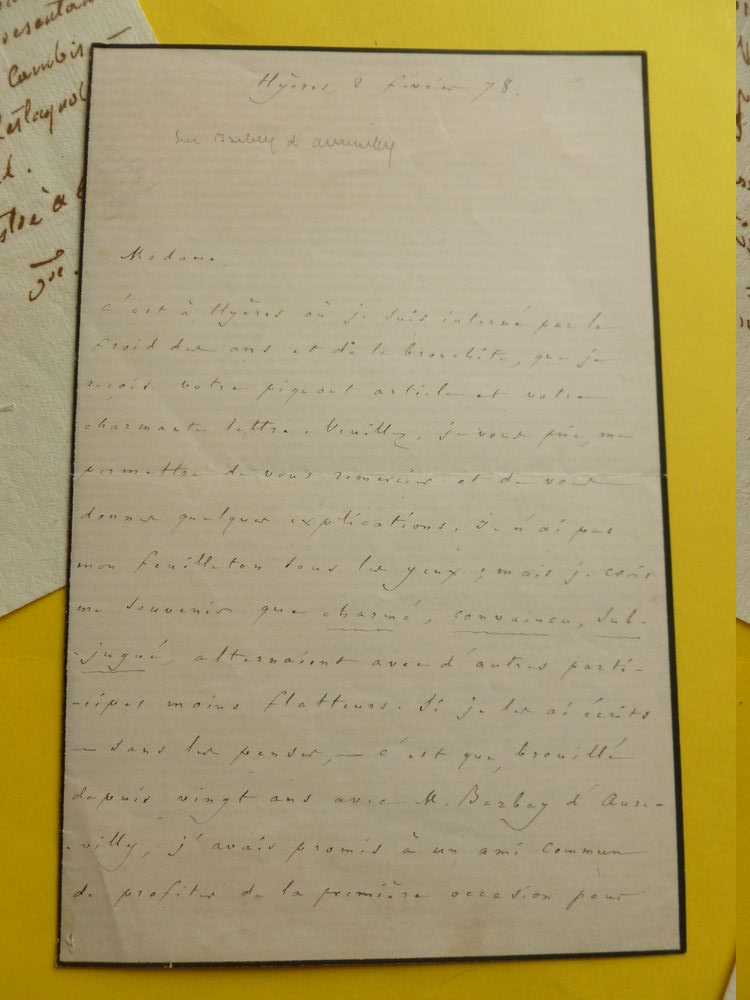 Hyères, 2 février 78.
Sur Barbey d'aurevilly
Madame,
C'est à Hyères où je suis interné par le
froid des ans et de la bronchite, que je
reçois votre piquant article et votre
charmante lettre. Veuillez, je vous prie, me
permettre de vous remercier et de vous
donner quelques explications. Je n'ai pas
mon feuilleton sous les yeux ; mais je crois
me souvenir que charmé, convaincu, sub-
-jugué, alternaient avec d'autres parti-
-cipes moins flatteurs. Si je les ai écrits
— sans les penser, — c'est que, brouillé
depuis vingt ans avec M. Barbey d'Aure-
-villy, j'avais promis à un ami commun
de profiter de la première occasion pour
esentan
Cambis —
Lestagnol